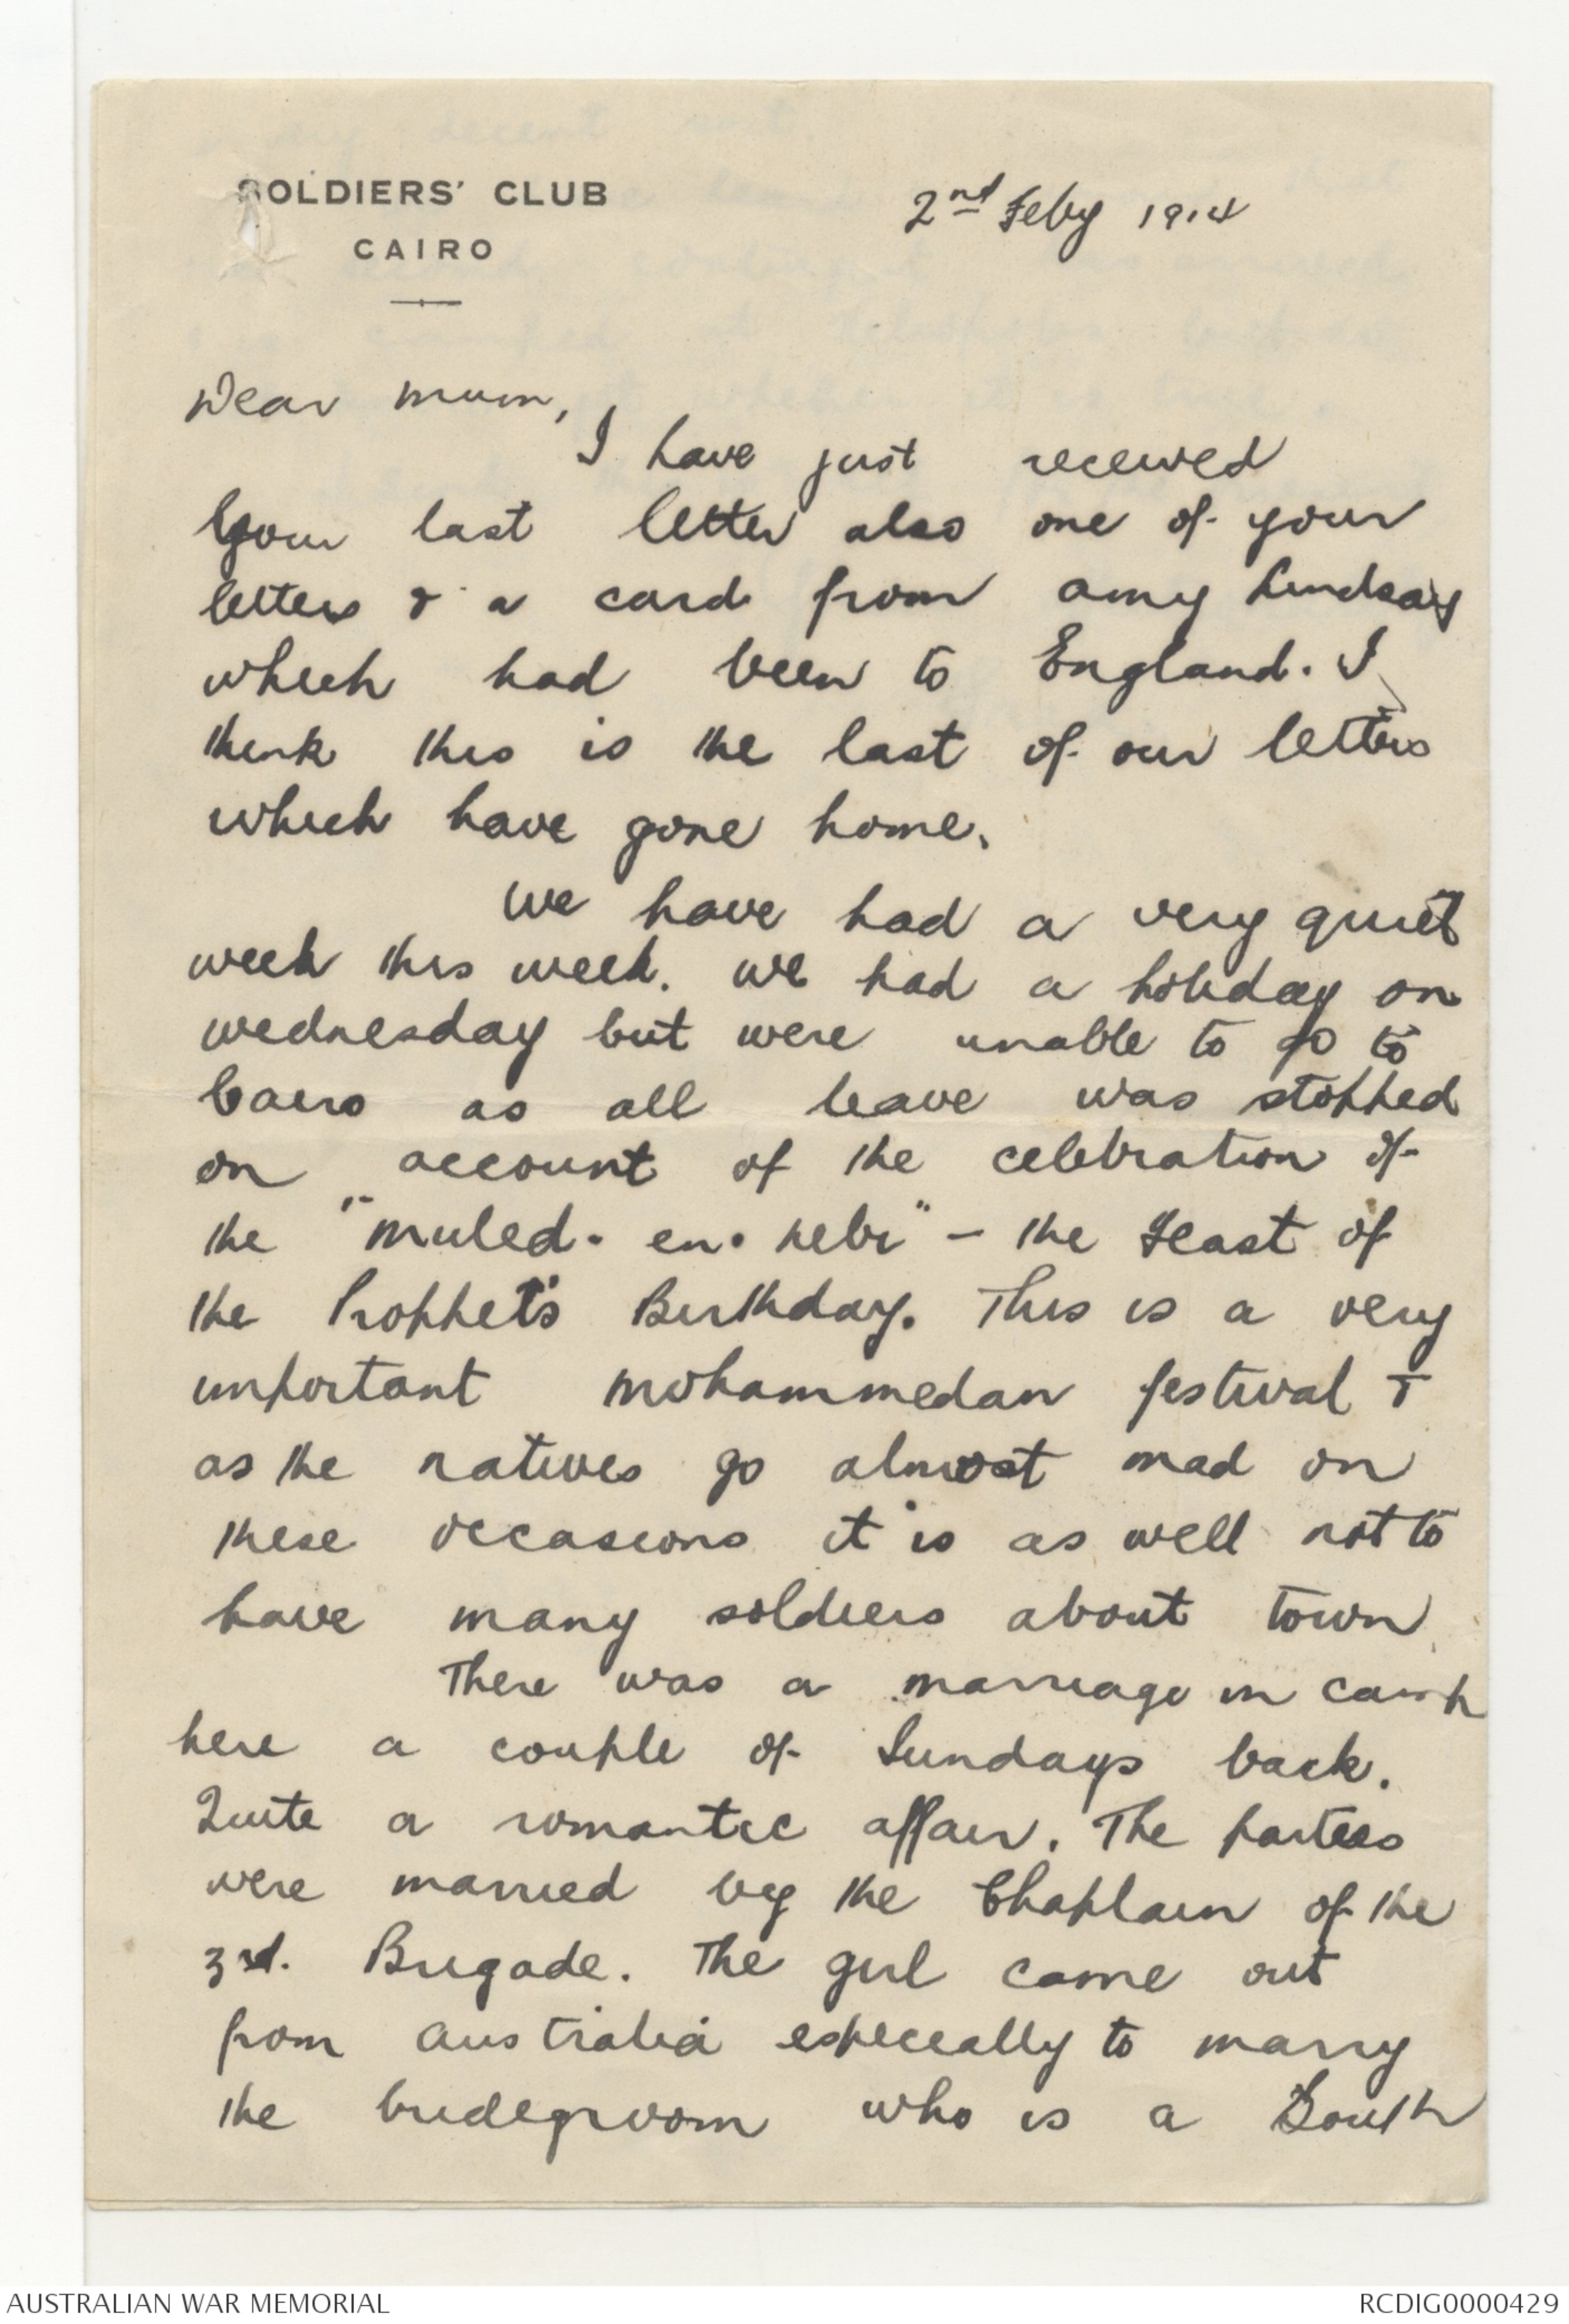 SOLDIERS' CLUB
CAIRO
2nd Feby 1914
Dear Mum,
I have just received
your last letter also one of your
letters & a card from Amy Lindsay
which had been to England. I
think this is the last of our letters
which have gone home.
We have had a very quiet
week this week. We had a holiday on
Wednesday but were unable to go to
Cairo as all leave was stopped
on account of the celebration of
the "Muled-en-Nebi" - the Feast of
the Prophet's Birthday. This is a very
important Mohammedan festival &
as the natives go almost mad on
these occasions it is as well not to
have many soldiers about town
There was a marriage in camp
here a couple of Sundays back.
Quite a romantic affair. The parties
were married by the Chaplain of the
3rd. Brigade. The girl came out
from Australia especially to marry
the bridegroom who is a South
AUSTRALIAN WAR MEMORIAL
RCDIG0000429